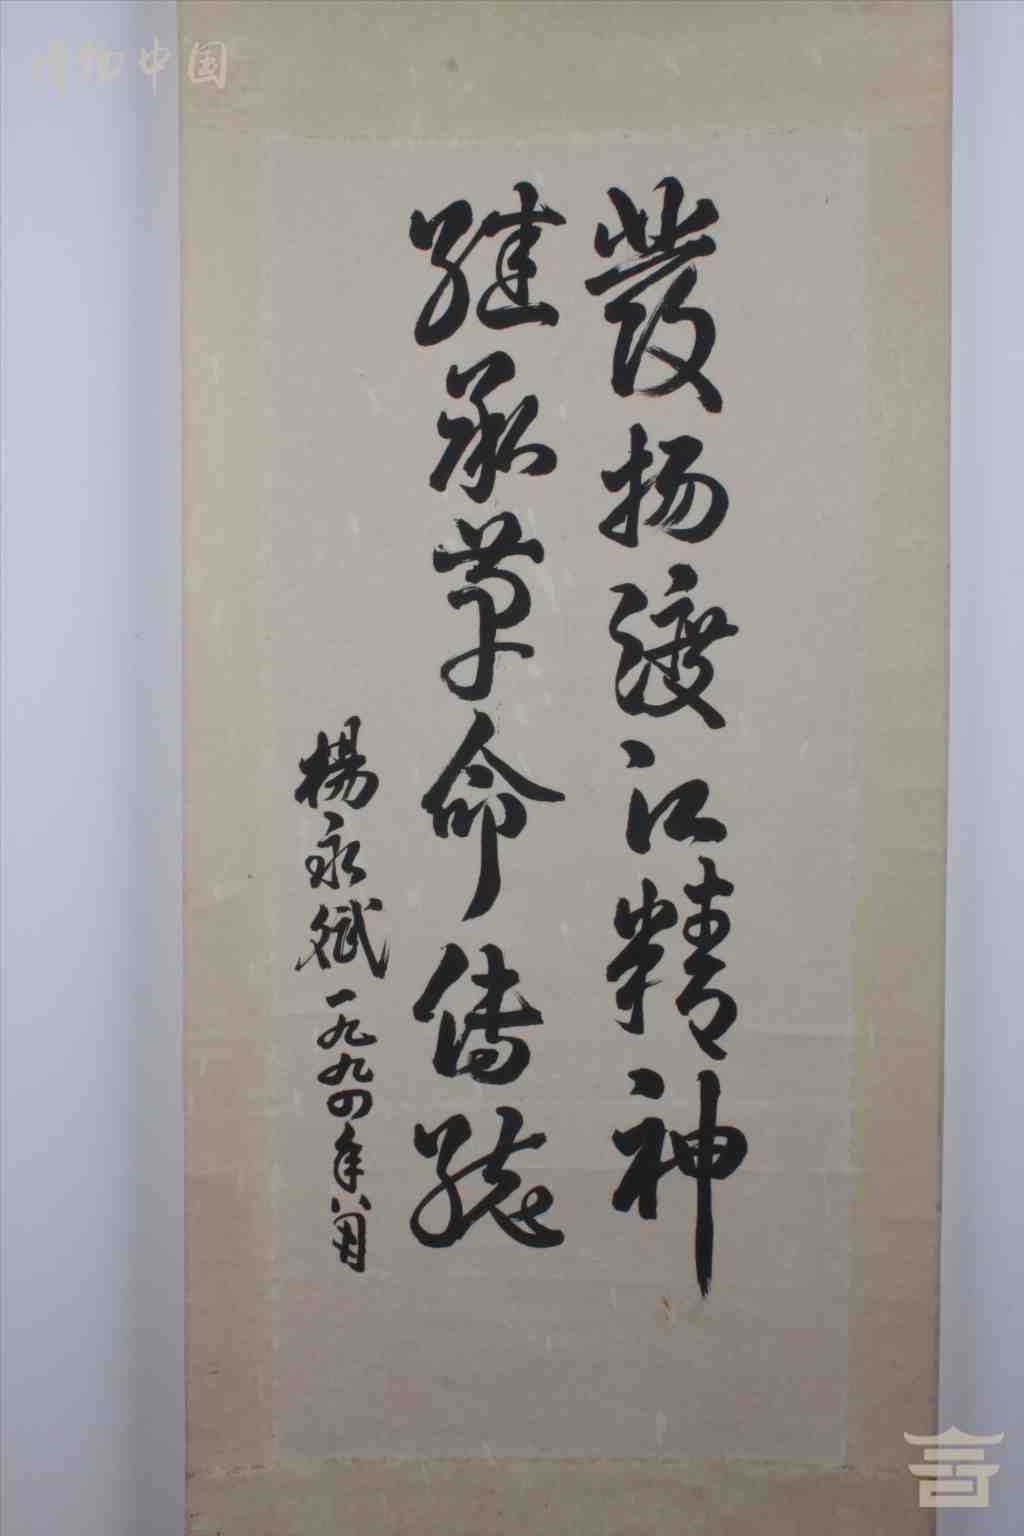 發扬渡江精神
継承革命传統
楊永斌一九九四年八月
博物中国